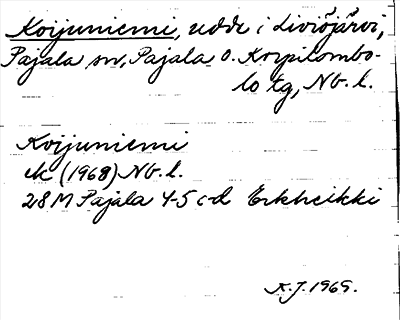 Koijuniemi, udde i Liviöjärvi,
Pajala sn, Pajala o. Korpilombo-
lo tg, Nb. l.
Koijuniemi
ek (1968) Nb. l.
28 M Pajala 4-5 c-d Erkheikki
K.J. 1969.